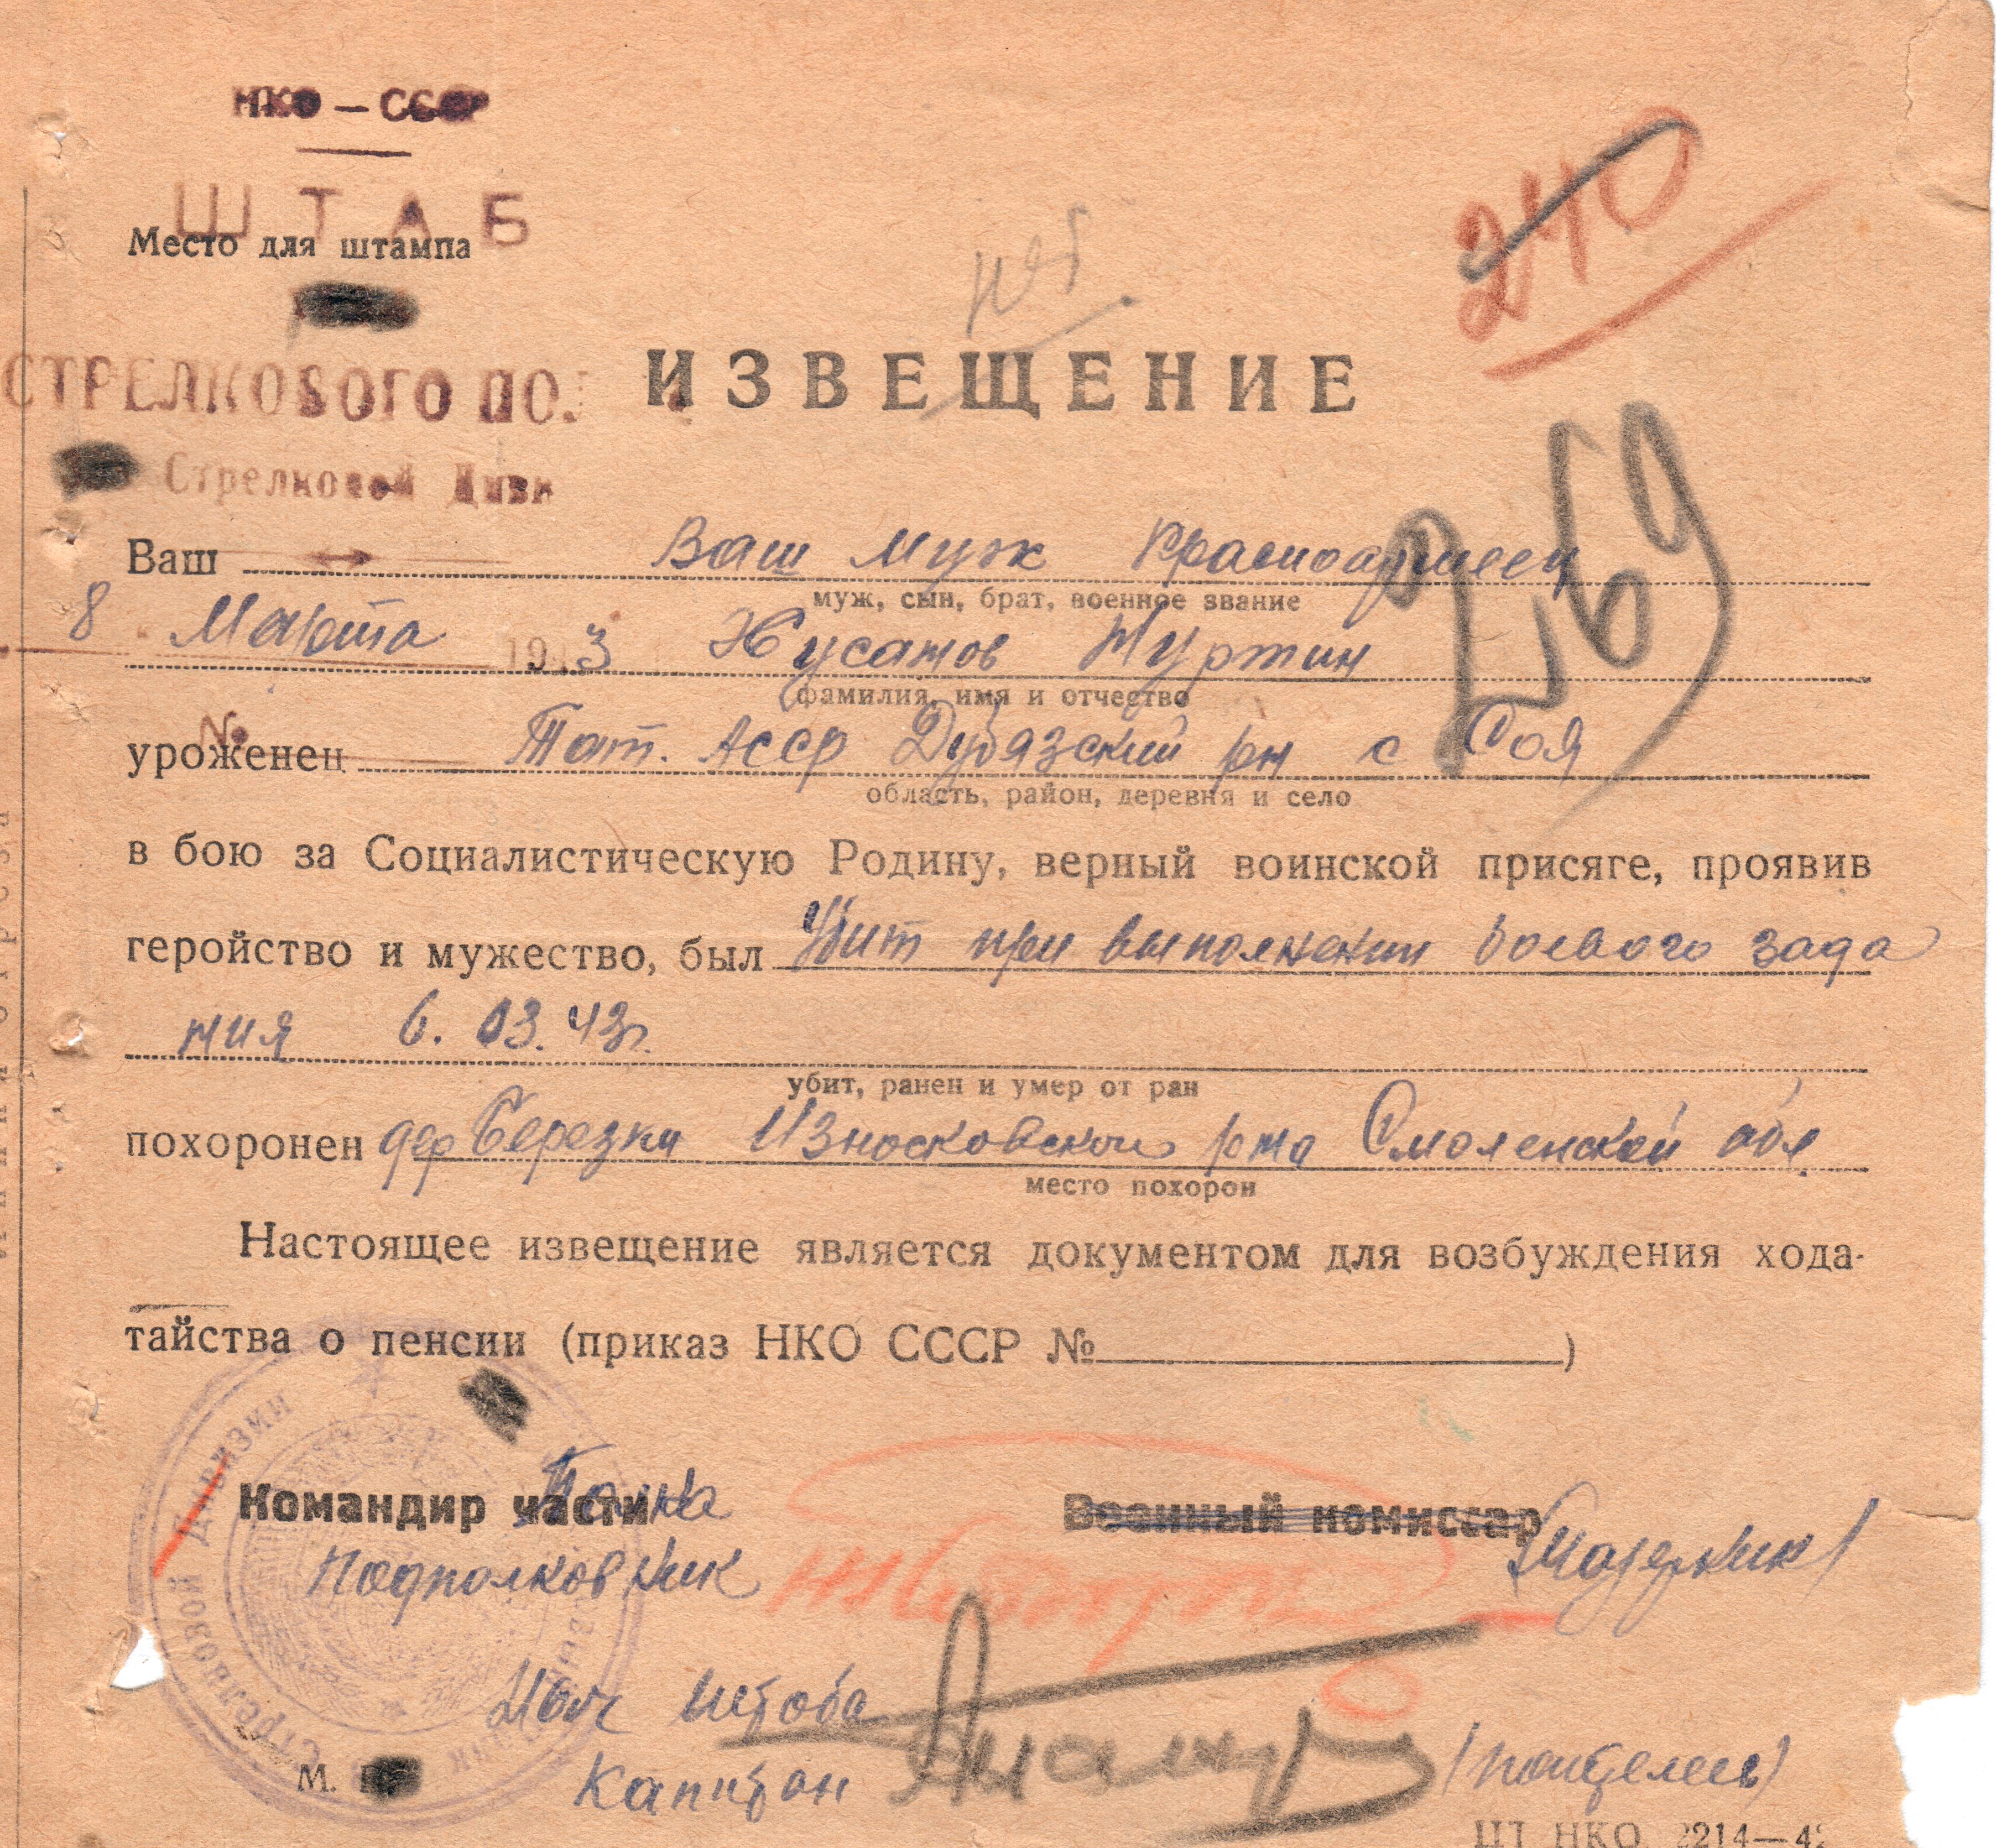 НКО — СССР
ШТАБ
Место для штампа
240
нет
СТРЕЛКОВОГО ПО
ИЗВЕЩЕНИЕ
269
Стрелковой Диви
Ваш Ваш муж красноармеец
муж, сын, брат, военное звание
8 Марта 1943 Хусатов Нуртин
фамилия, имя и отчество
№
уроженец Тат. АССР Дубязский рн с Соя
область, район, деревня и село
в бою за Социалистическую Родину, верный воинской присяге, проявив
геройство и мужество, был Убит при выполнении боевого зада
ния 6.03.43г.
убит, ранен и умер от ран
похоронен дер Березки Износковского р-на Смоленской обл
место похорон
Настоящее извещение является документом для возбуждения хода-
тайства о пенсии (приказ НКО СССР №)
Стрелковой Дивизии
Командир части Полка Военный комиссар
Подполковник
Нач штаба
М. Капитан
ЦТ НКО 2214—42